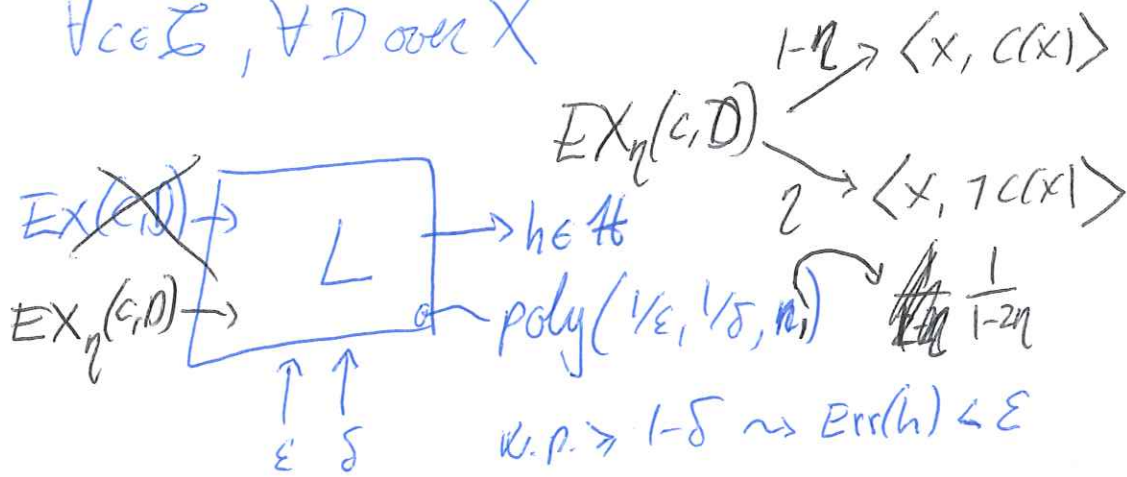 ∀c∈ℭ, ∀D over X
EX_η(c,D)
1-η → ⟨x, c(x)⟩
η → ⟨x, ¬c(x)⟩
EX(c,D) →
EX_η(c,D) →
L
→ h∈ℋ
poly(1/ε, 1/δ, n,)
1/(1-2η)
ε δ
w.p. ≥ 1-δ ⇝ Err(h) < ε